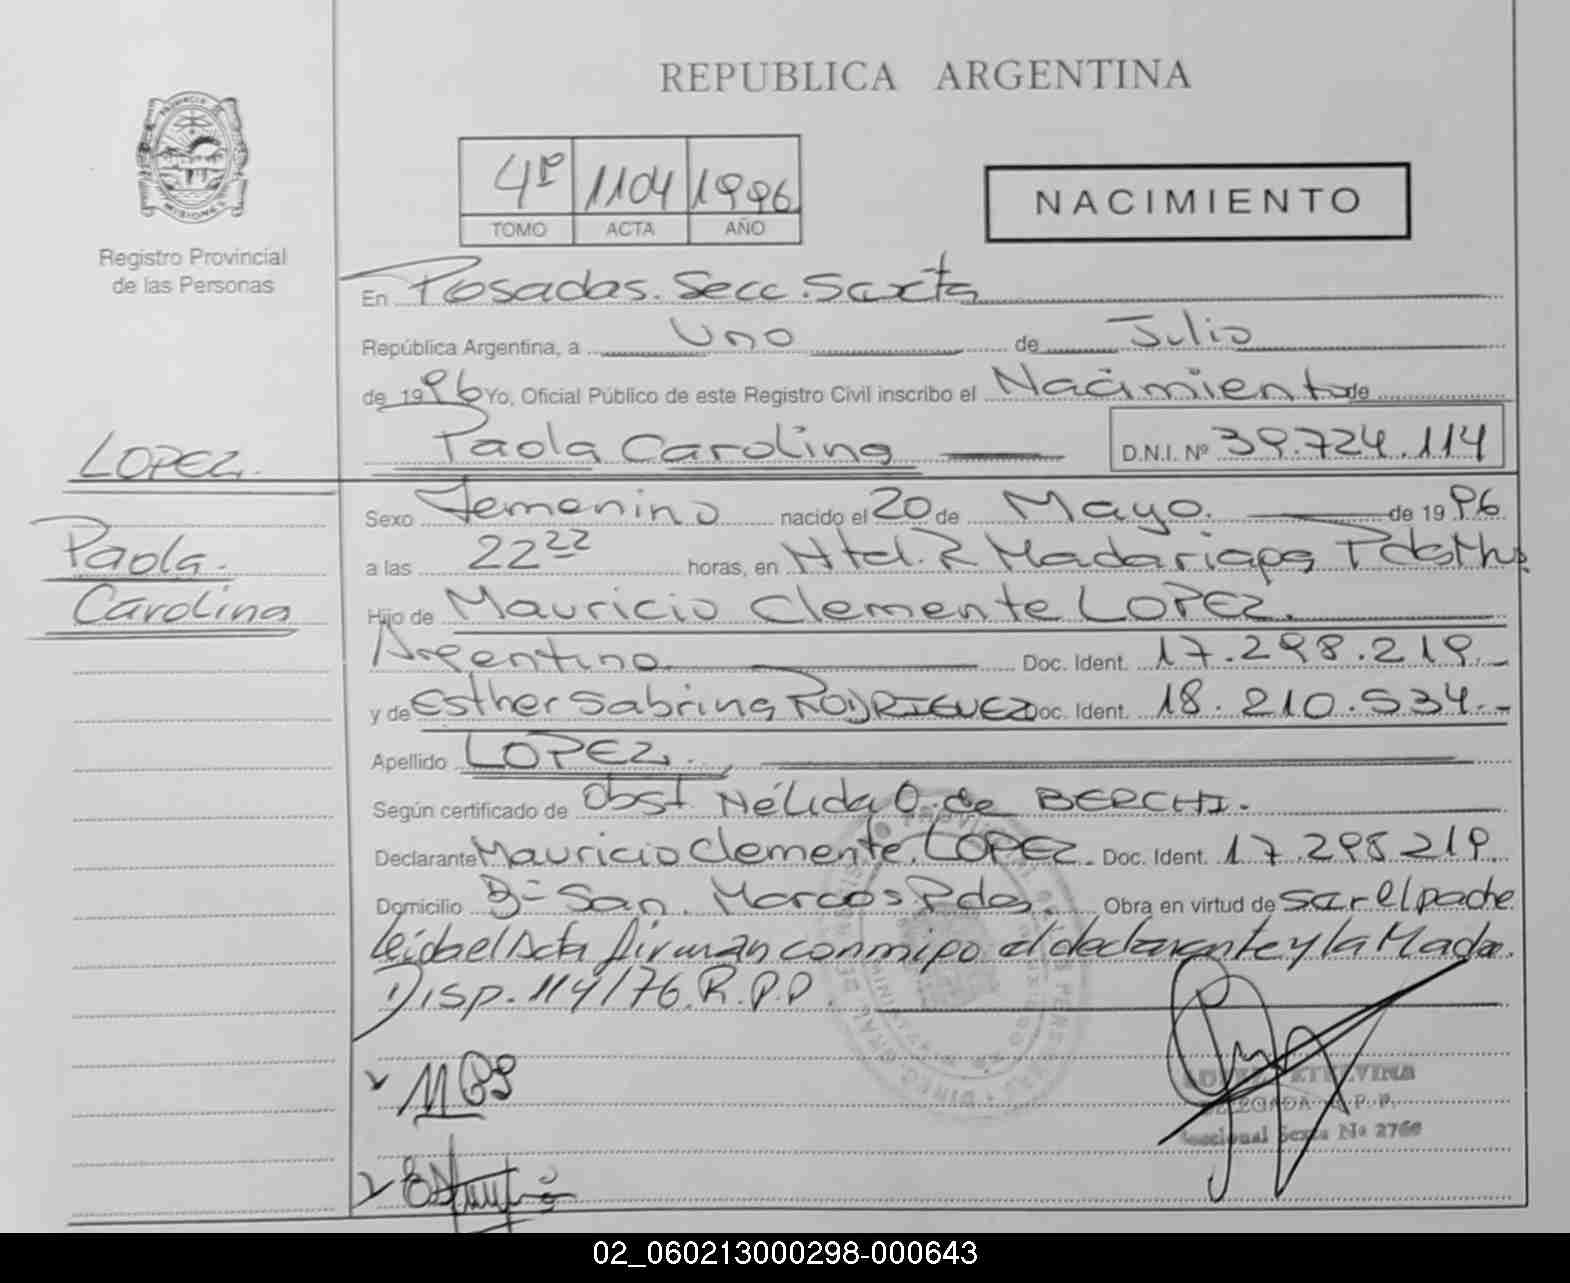 REPUBLICA ARGENTINA
PROVINCIA DE
MISIONES
Registro Provincial
de las Personas
4º 1104 1996
TOMO ACTA AÑO
NACIMIENTO
En Posadas. Secc. Sexta
República Argentina, a Uno de Julio
de 1996 Yo, Oficial Público de este Registro Civil inscribo el Nacimiento de
Paola Carolina D.N.I. Nº 39.724.114
LOPEZ.
Paola.
Carolina
Sexo Femenino nacido el 20 de Mayo. de 1996
a las 22 22 horas, en Htal. R Madariaga Pdas Mnes
Hijo de Mauricio Clemente LOPEZ.
Argentino Doc. Ident. 17.298.219.-
y de Esther Sabrina RODRIGUEZ Doc. Ident. 18.210.534.-
Apellido LOPEZ.
Según certificado de Obst Nélida O. de BERCHI.
Declarante Mauricio Clemente. LOPEZ. Doc. Ident. 17.298 219.
Domicilio Bº San. Marcos Pdas. Obra en virtud de ser el padre
Leida el Acta firman conmigo el declarante y la Madre.
Disp. 114/76. R.P.P.
ETELVINA
DELEGADA R.P.P.
Seccional Sexta Nº 2768
02_060213000298-000643